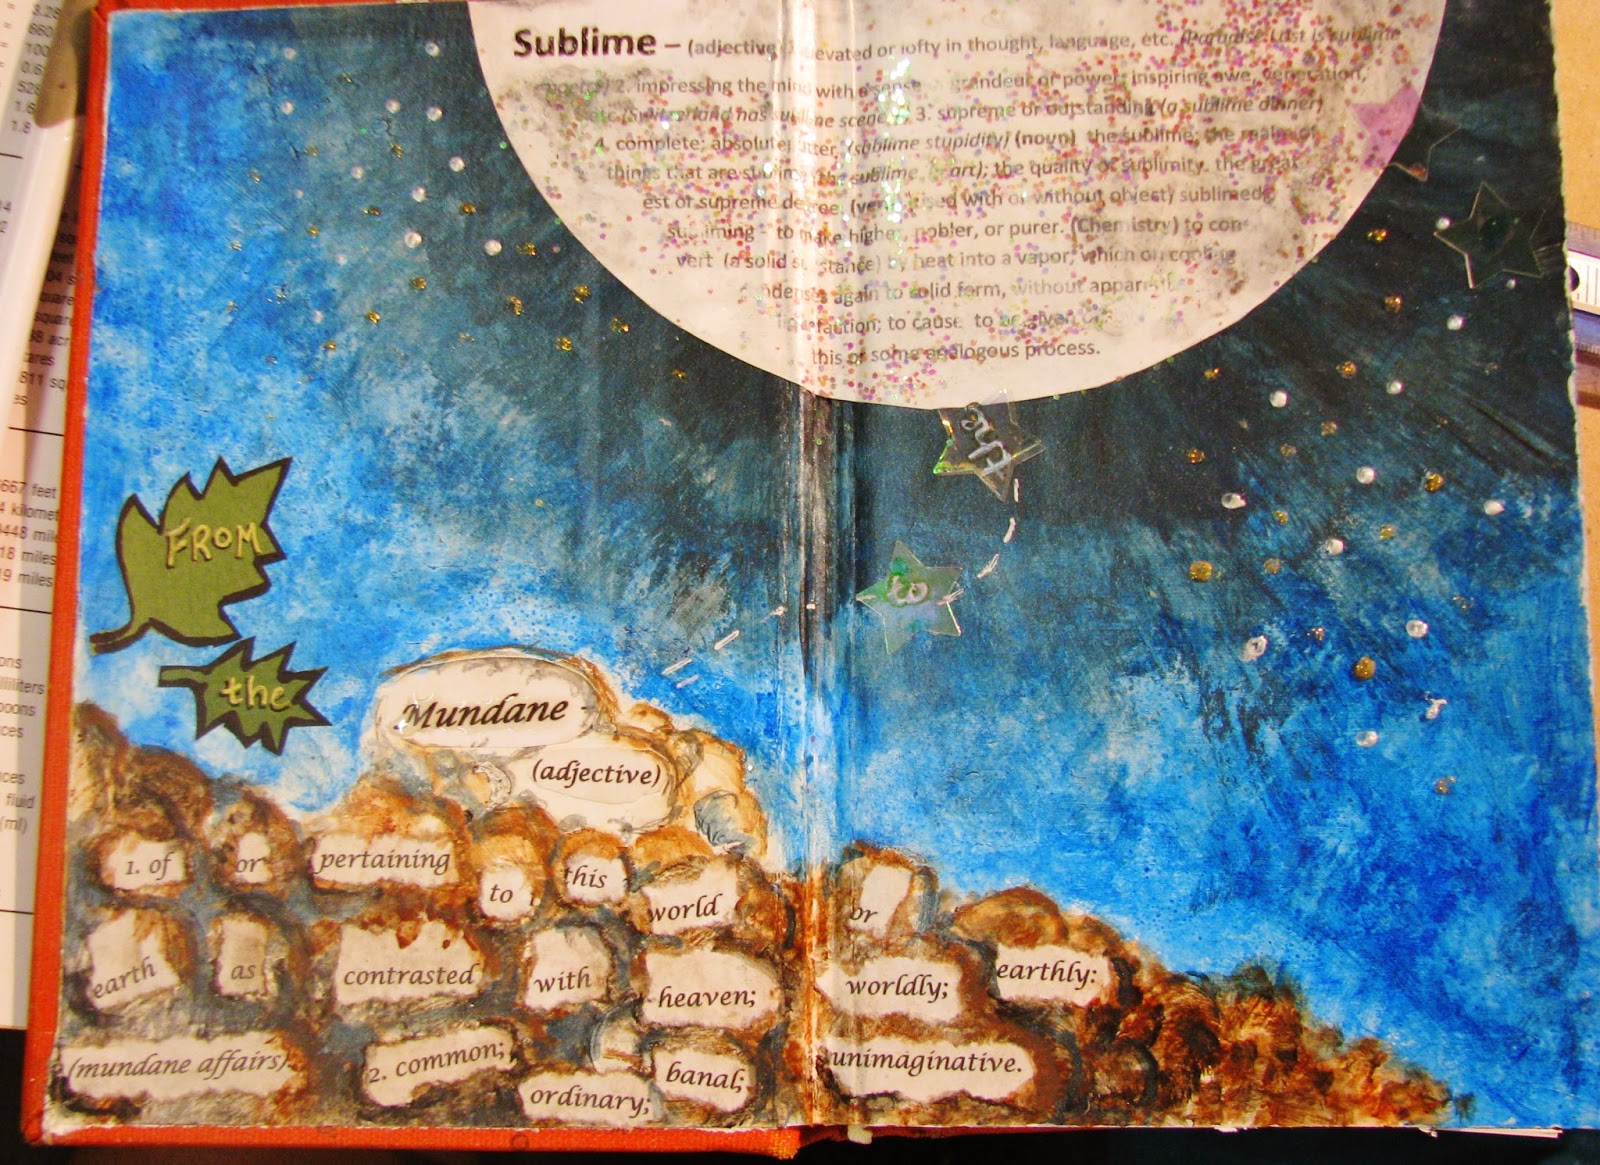 Sublime – (adjective) elevated or lofty in thought, language, etc. (Paradise Lost is sublime
poetry) 2. impressing the mind with a sense of grandeur or power; inspiring awe, veneration,
etc. (Switzerland has sublime scenery) 3. supreme or outstanding (a sublime dinner)
4. complete; absolute; utter (sublime stupidity) (noun) the sublime; the realm of
things that are sublime (the sublime in art); the quality of sublimity. the great
est or supreme degree. (verb used with or without object) sublimed,
subliming - to make higher, nobler, or purer. (Chemistry) to con
vert (a solid substance) by heat into a vapor, which on cooling
condenses again to solid form, without apparent
liquefaction; to cause to be given
this or some analogous process.
FROM
the
Mundane -
(adjective)
1. of or pertaining to this world or
earth as contrasted with heaven; worldly; earthly:
(mundane affairs). 2. common; ordinary; banal; unimaginative.
to
the
feet
miles
miles
fluid
(ml)